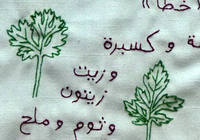 «خطا»
ة و كسبرة
وزيت
زيتون
وثوم وملح